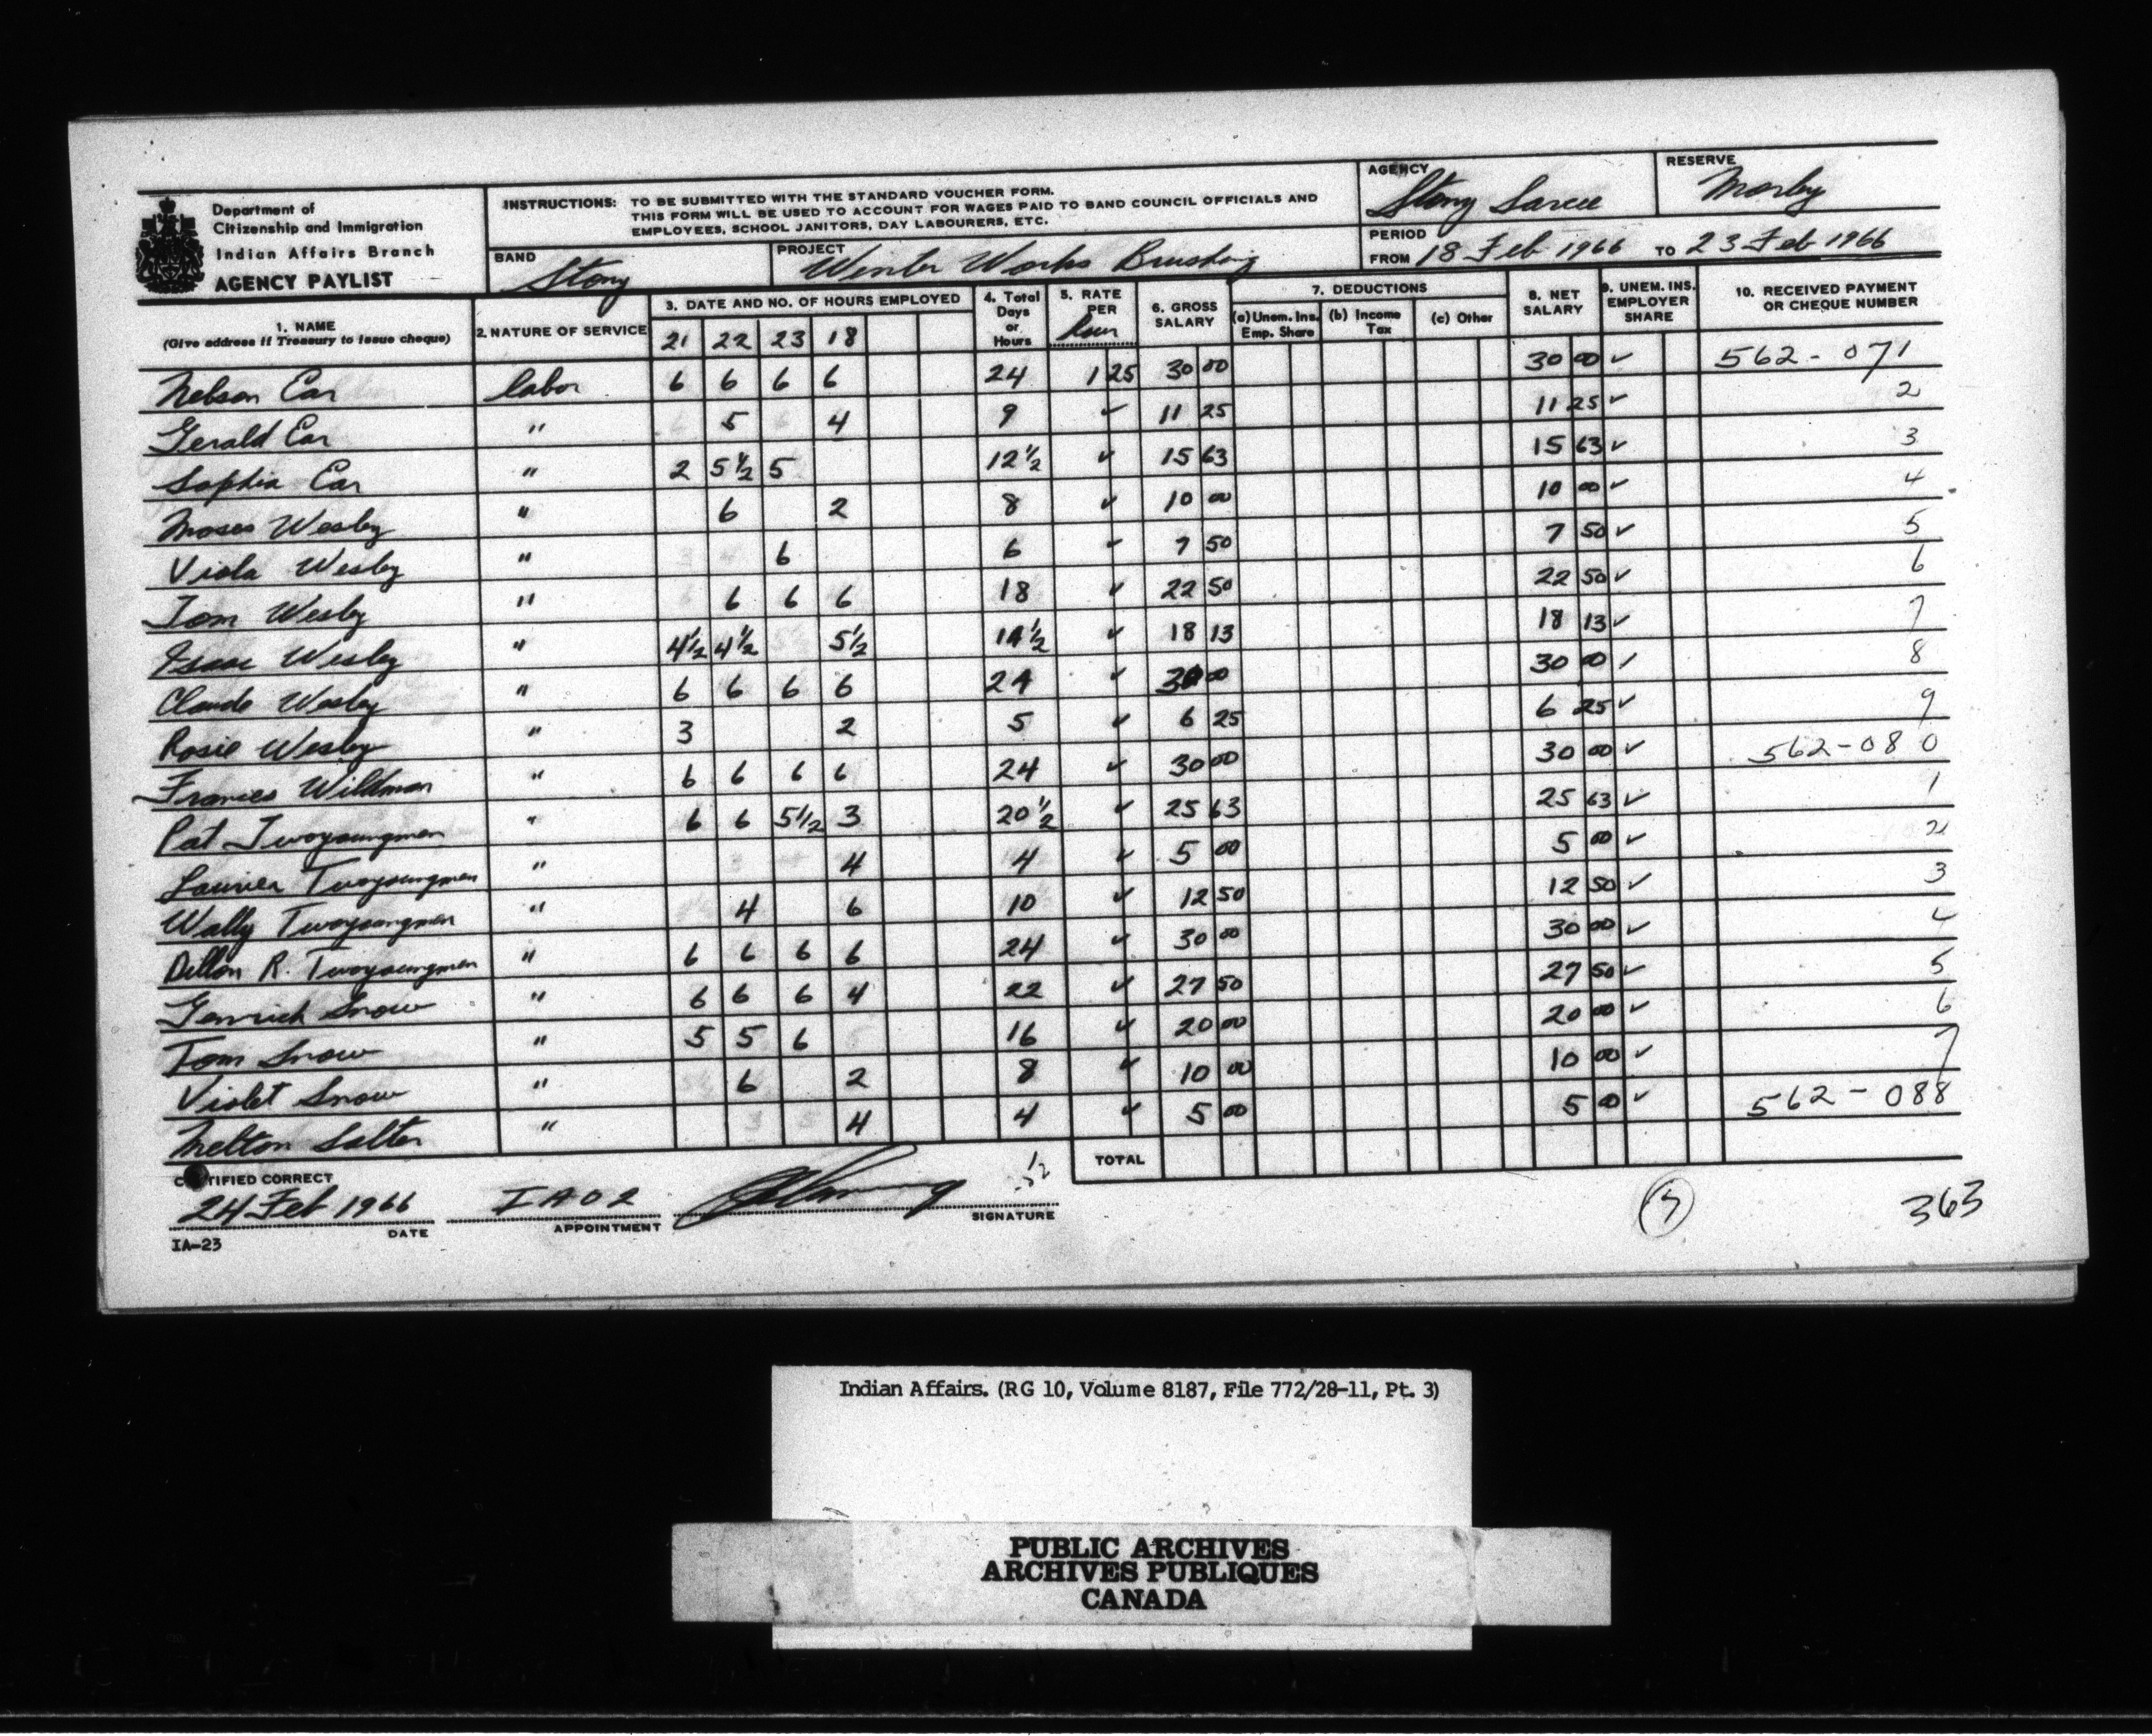 Department of
Citizenship and Immigration
Indian Affairs Branch
AGENCY PAYLIST
INSTRUCTIONS: TO BE SUBMITTED WITH THE STANDARD VOUCHER FORM.
THIS FORM WILL BE USED TO ACCOUNT FOR WAGES PAID TO BAND COUNCIL OFFICIALS AND
EMPLOYEES, SCHOOL JANITORS, DAY LABOURERS, ETC.
AGENCY Stony Sarcee
RESERVE Morley
BAND Stony
PROJECT Winter Works Brushing
PERIOD
FROM 18 Feb 1966 TO 23 Feb 1966
1. NAME
(Give address if Treasury to issue cheque)
2. NATURE OF SERVICE
3. DATE AND NO. OF HOURS EMPLOYED
21 22 23 18
4. Total Days or Hours
5. RATE PER hour
6. GROSS SALARY
7. DEDUCTIONS
(a) Unem. Ins. Emp. Share
(b) Income Tax
(c) Other
8. NET SALARY
9. UNEM. INS. EMPLOYER SHARE
10. RECEIVED PAYMENT OR CHEQUE NUMBER
Nelson Ear labor 6 6 6 6 24 1 25 30 00 30 00 ✓ 562-071
Gerald Ear " 5 4 9 ✓ 11 25 11 25 ✓ 2
Sophia Ear " 2 5½ 5 12½ ✓ 15 63 15 63 ✓ 3
Moses Wesley " 6 2 8 ✓ 10 00 10 00 ✓ 4
Viola Wesley " 6 6 ✓ 7 50 7 50 ✓ 5
Tom Wesley " 6 6 6 18 ✓ 22 50 22 50 ✓ 6
Isaac Wesley " 4½ 4½ 5½ 14½ ✓ 18 13 18 13 ✓ 7
Claude Wesley " 6 6 6 6 24 ✓ 30 00 30 00 ✓ 8
Rosie Wesley " 3 2 5 ✓ 6 25 6 25 ✓ 9
Frances Wildman " 6 6 6 6 24 ✓ 30 00 30 00 ✓ 562-080
Pat Twoyoungmen " 6 6 5½ 3 20½ ✓ 25 63 25 63 ✓ 1
Twoyoungmen " 4 4 ✓ 5 00 5 00 ✓ 2
Wally Twoyoungmen " 4 6 10 ✓ 12 50 12 50 ✓ 3
Dillon R. Twoyoungmen " 6 6 6 6 24 ✓ 30 00 30 00 ✓ 4
Snow " 6 6 6 4 22 ✓ 27 50 27 50 ✓ 5
Tom Snow " 5 5 6 16 ✓ 20 00 20 00 ✓ 6
Violet Snow " 6 2 8 ✓ 10 00 10 00 ✓ 7
Melton Salter " 4 4 ✓ 5 00 5 00 ✓ 562-088
TOTAL
TIFIED CORRECT
24 Feb 1966 IA02
DATE APPOINTMENT SIGNATURE
IA-23
363
Indian Affairs. (RG 10, Volume 8187, File 772/28-11, Pt. 3)
PUBLIC ARCHIVES
ARCHIVES PUBLIQUES
CANADA